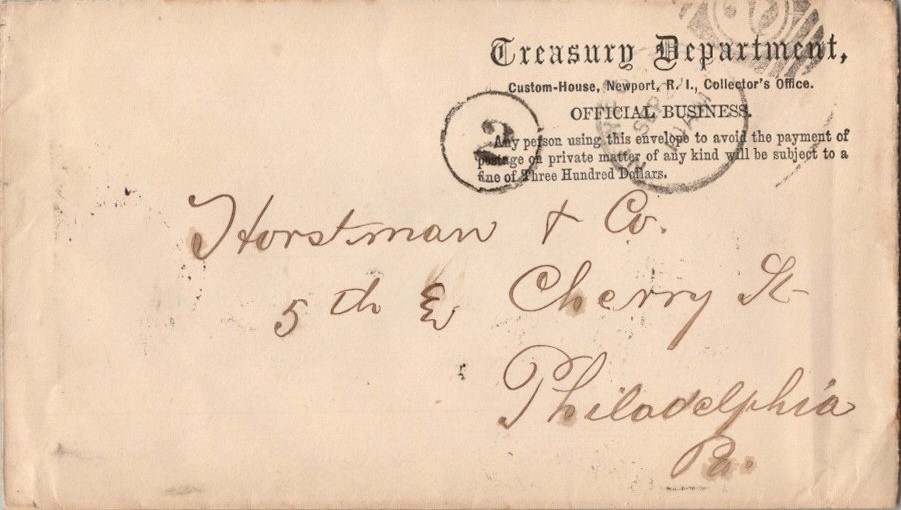 Treasury Department,
Custom-House, Newport, R. I., Collector's Office.
OFFICIAL BUSINESS.
Any person using this envelope to avoid the payment of
postage on private matter of any kind will be subject to a
fine of Three Hundred Dollars.
2
SEP
10 AM
Horstman & Co.
5th & Cherry St
Philadelphia
Pa.